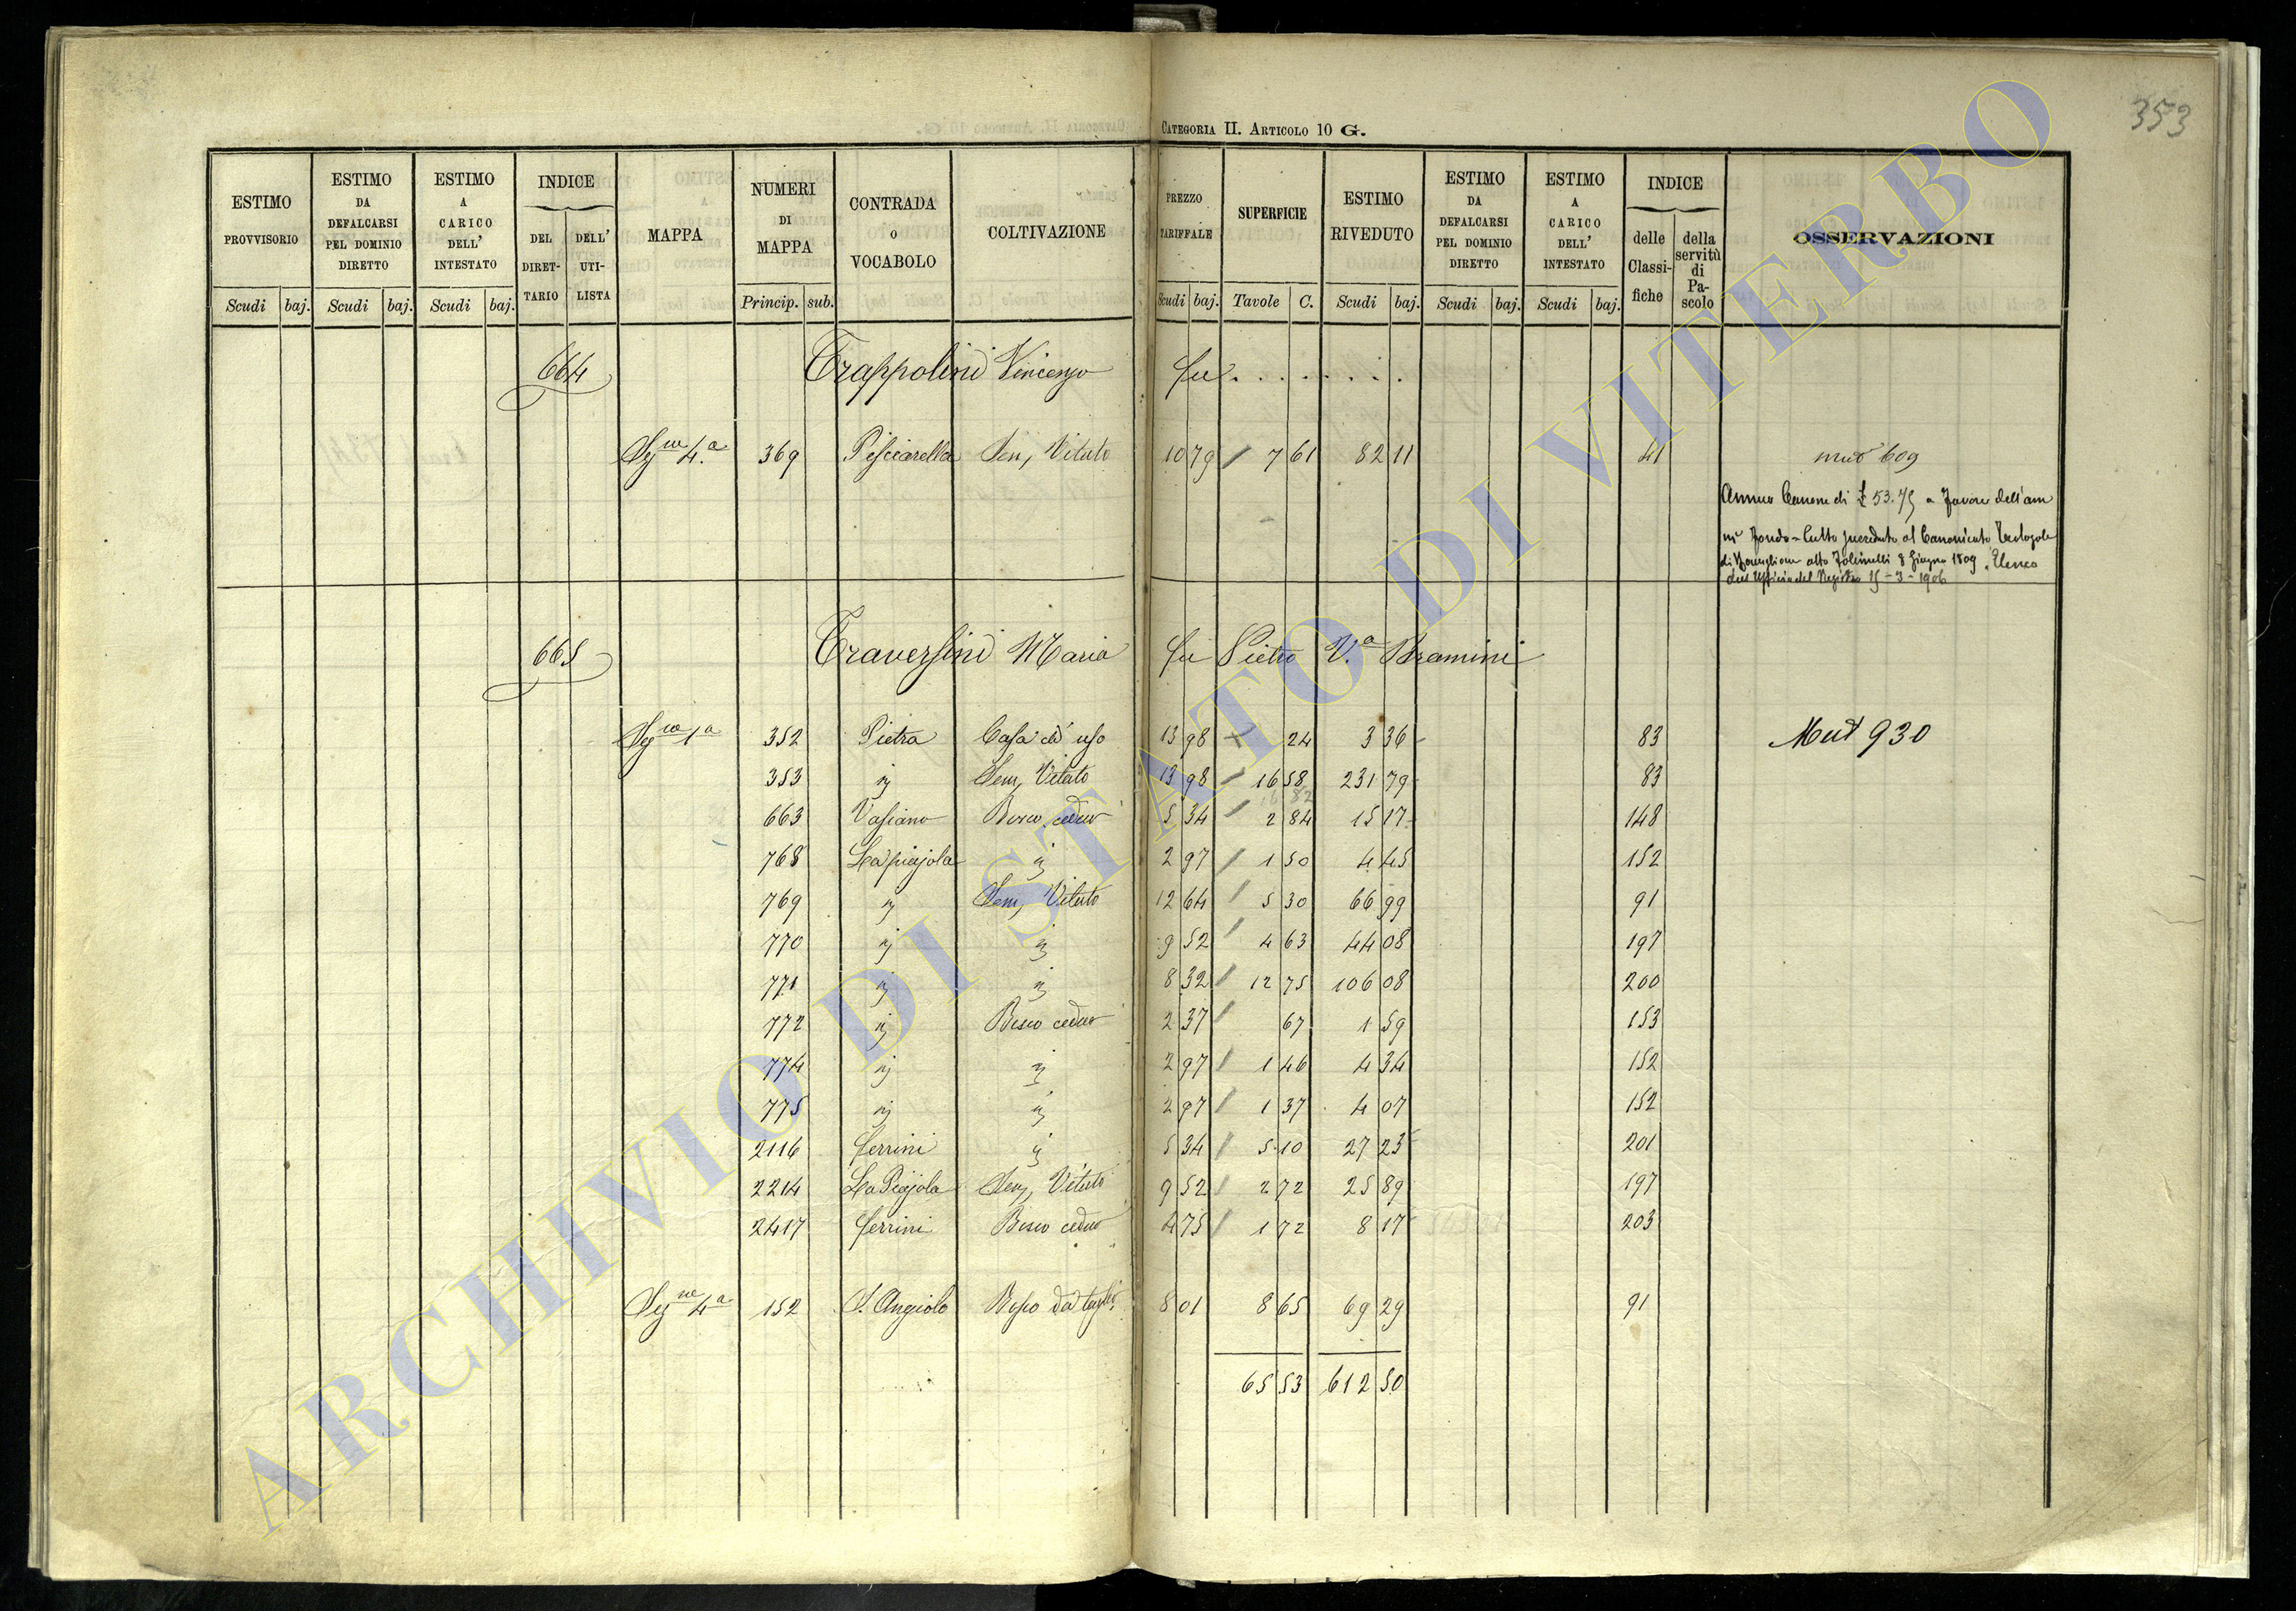 353
CATEGORIA II. ARTICOLO 10 G.
ESTIMO PROVVISORIO Scudi baj.
ESTIMO DA DEFALCARSI PEL DOMINIO DIRETTO Scudi baj.
ESTIMO A CARICO DELL' INTESTATO Scudi baj.
INDICE DEL DIRET-TARIO DELL' UTI-LISTA
MAPPA
NUMERI DI MAPPA Princip. sub.
CONTRADA O VOCABOLO
COLTIVAZIONE
PREZZO TARIFFALE Scudi baj.
SUPERFICIE Tavole C.
ESTIMO RIVEDUTO Scudi baj.
ESTIMO DA DEFALCARSI PEL DOMINIO DIRETTO Scudi baj.
ESTIMO A CARICO DELL' INTESTATO Scudi baj.
INDICE delle Classi-fiche della servitù di Pa-scolo
OSSERVAZIONI
664 Trappolini Vincenzo fu . . . . . . .
Segne 4.a 369 Pisciarella Sem, Vitato 10 79 7 61 82 11 41 mut 609
Annuo Canone di £ 53.75 a favore dell'am
8 Giugno 1809. Elenco
dell Ufficio del Registro 15-3-1906
665 Traversini Maria fu Pietro V.a Bramini
Segne 1a 352 Pietra Casa di uso 13 98 24 3 36 83 Mut 930
353 " Sem, Vitato 13 98 16 58 231 79 83
16 82
663 Vasiano Bosco ceduo 5 34 2 84 15 17 148
768 La piajola " 2 97 1 50 4 45 152
769 " Sem, Vitato 12 64 5 30 66 99 91
770 " " 9 52 4 63 44 08 197
771 " " 8 32 12 75 106 08 200
772 " Bosco ceduo 2 37 67 1 59 153
774 " " 2 97 1 46 4 34 152
775 " " 2 97 1 37 4 07 152
2116 ferrini " 5 34 5 10 27 23 201
2214 La Piajola Sem, Vitato 9 52 2 72 25 89 197
2417 ferrini Bosco ceduo 4 75 1 72 8 17 203
Segne 4a 152 S. Angiolo Bosco da taglio 8 01 8 65 69 29 91
65 53 612 50
ARCHIVIO DI STATO DI VITERBO